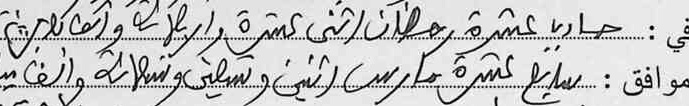 في : حادي عشرة رمضان اثنى عشرة واربعمائة والف
موافق : سابع عشرة مارس اثنين وتسعين وتسعمائة والف